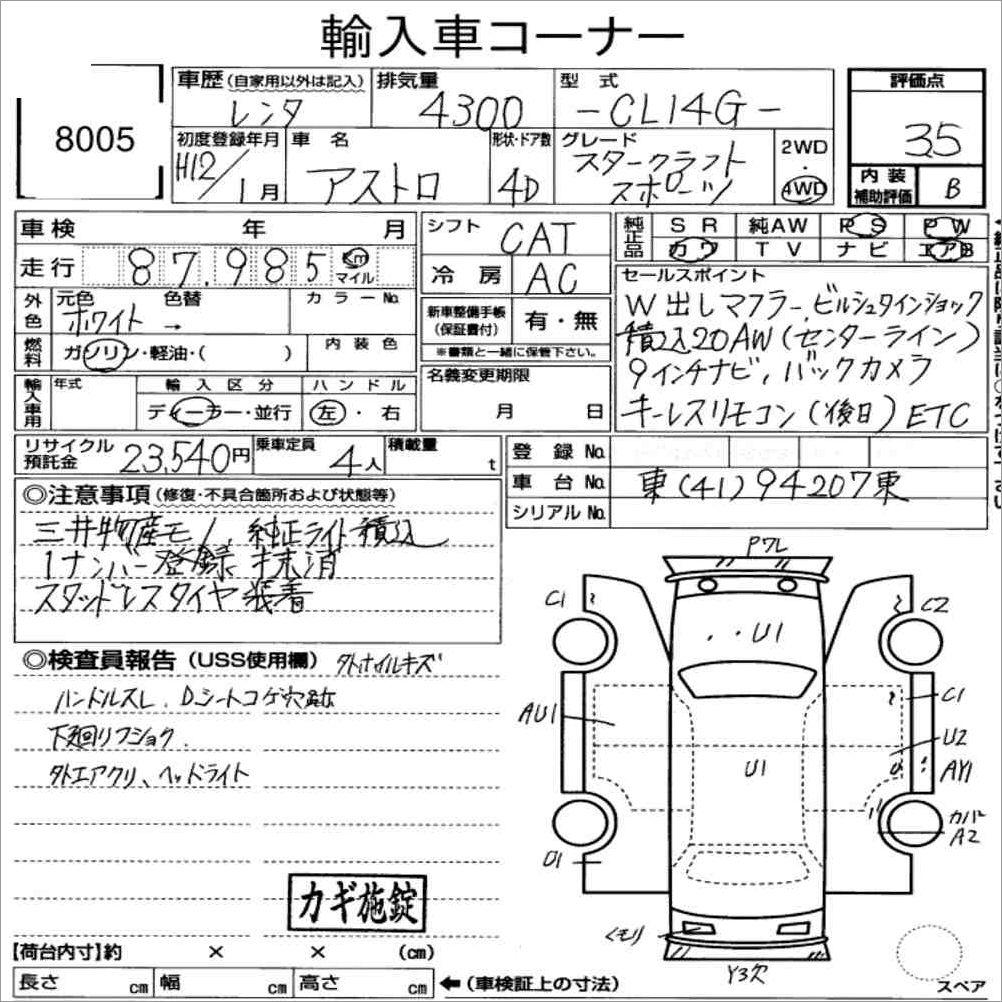 輸入車コーナー
8005
車歴(自家用以外は記入) 排気量 型式 評価点
レンタ 4300 -CL14G- 3.5
初度登録年月 車名 形状・ドア数 グレード 2WD・4WD
H12/1月 アストロ 4D スタークラフト
スポーツ
内装補助評価 B
車検 年 月 シフト CAT 純正品 SR 純AW PS PW
走行 87,985 Km マイル 冷房 AC カワ TV ナビ エアB
外色 元色 色替 カラーNo.
ホワイト →
燃料 ガソリン・軽油・( ) 内装色
新車整備手帳(保証書付) 有・無
※書類と一緒に保管下さい。
セールスポイント
W出しマフラー、ビルシュタインショック
積込20AW(センターライン)
9インチナビ、バックカメラ
キーレスリモコン(後日)ETC
輸入車用 年式 輸入区分 ハンドル 名義変更期限
ディーラー・並行 左・右 月 日
リサイクル預託金 23,540円 乗車定員 4人 積載量 t 登録No.
車台No. 東(41)94207東
シリアルNo.
◎注意事項(修復・不具合箇所および状態等)
三井物産モノ、純正ライト積込
1ナンバー登録 抹消
スタッドレスタイヤ装着
◎検査員報告(USS使用欄) 外ホイルキズ
ハンドルスレ、Dシートコゲ穴
下廻りフショク、
外エアクリ、ヘッドライト
カギ施錠
P7L
C1 C2
U1
C1
AU1
U2
U1
AY1
カバー
A2
U1
くもり
Y3欠
スペア
【荷台内寸】約 × × (cm)
長さ cm 幅 cm 高さ cm ←(車検証上の寸法)